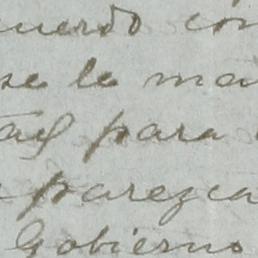 uerdo con
se le ma
para
parezca
Gobierno